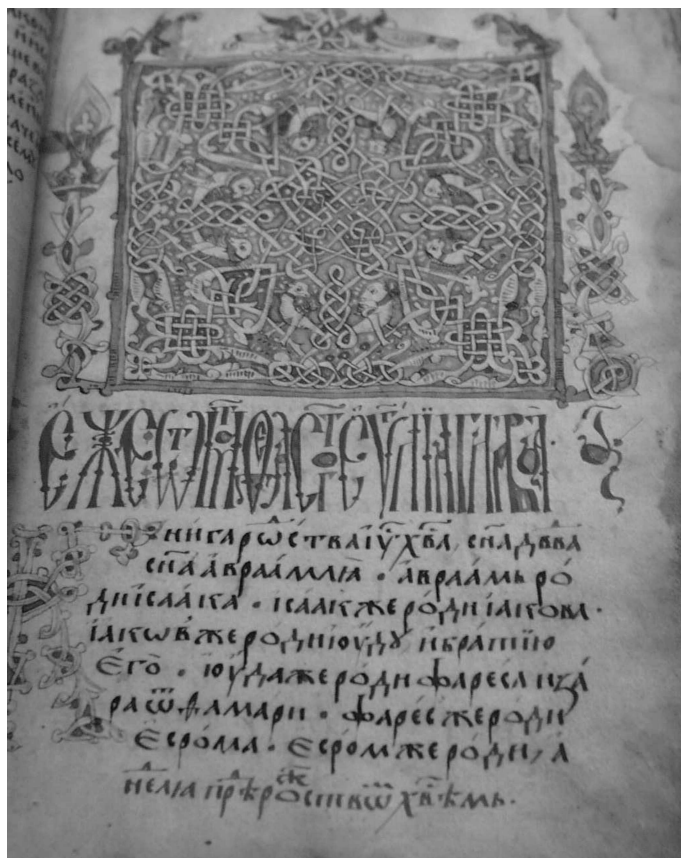 Е҆́же ѿ маⷴ҇ѳеа ст҃ое є҆ѵⷢ҇лїе глава̀ а҃
Книга рⷪ҇ства і҆у҃ хв҃а, сн҃а дв҃два
сн҃а а҆враа́млѧ · а҆враа́мь ро́
ди і҆саа́ка · і҆саа́к же ро́ди і҆а́кова ·
і҆а́кѡв же ро́ди ю҆ду и҆ бра́тїю
є҆го̀ · ю҆да же ро́ди фаре́са и҆ за́
ра ѿ ѳама́ри · фаре́с же ро́ди
Е҆сро́ма · Е҆сро́м же ро́ди, а҆
нⷣелѧ прⷣѣ рⷪ҇жⷭ҇твѡⷨ хв҃ѣмь ·